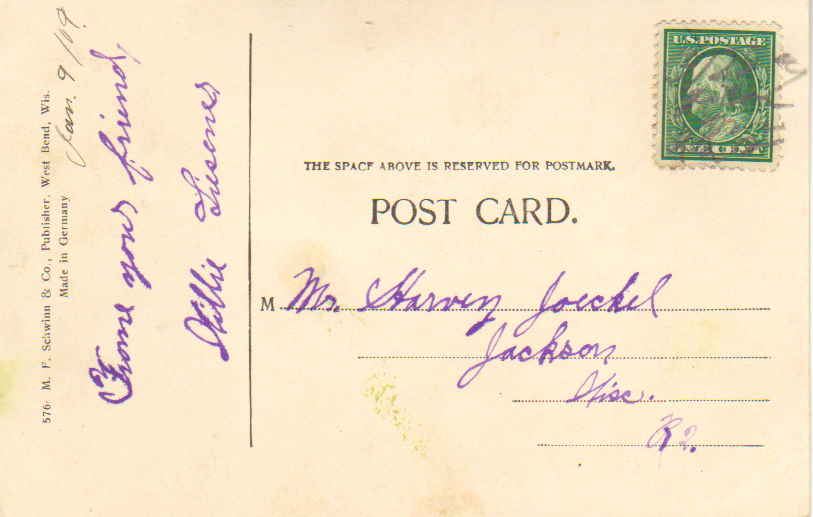 576. M. F. Schwinn & Co., Publisher, West Bend, Wis.
Made in Germany
Jan. 9/09
Frome your friend,
Willie
U.S. POSTAGE
THE SPACE ABOVE IS RESERVED FOR POSTMARK.
POST CARD.
M Mr. Harvey Joeckel
Jackson
Wisc.
R2.